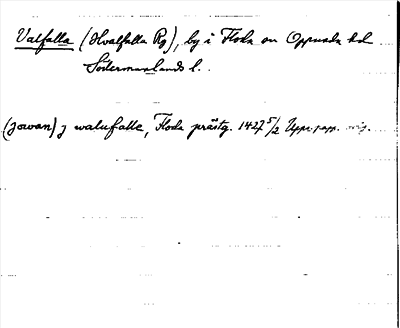 Valfalla (Hvalfalla Rg), by i Floda sn Oppunda hd
Södermanlands l.
(jowan) j walufalle, Floda prästg. 1427 5/2 Upps. papp.